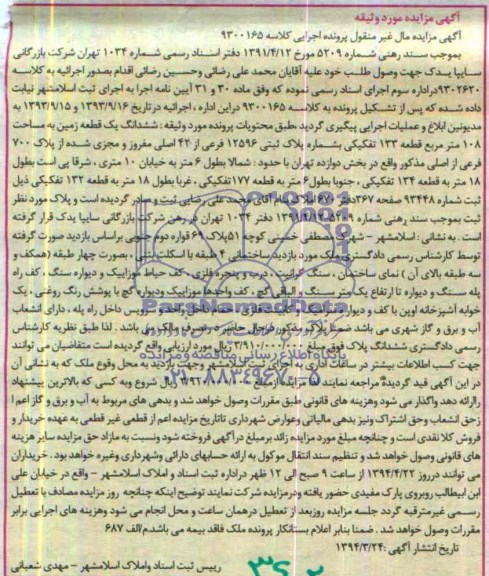 آگهی مزایده مورد وثیقه
آگهی مزایده مال غیر منقول پرونده اجرایی کلاسه ۹۳۰۰۱۶۵
بموجب سند رهنی شماره ۵۲۰۹ مورخ ۱۳۹۱/۴/۱۲ دفتر اسناد رسمی شماره ۱۰۳۴ تهران شرکت بازرگانی
سایپا یدک جهت وصول طلب خود علیه آقایان محمد علی رضائی وحسین رضائی اقدام بصدور اجرائیه به کلاسه
۹۳۰۲۶۲۰در اداره سوم اجرای اسناد رسمی نموده که وفق ماده ۳۰ و ۳۱ آیین نامه اجرا به اجرای ثبت اسلامشهر نیابت
داده شده که پس از تشکیل پرونده به کلاسه ۹۳۰۰۱۶۵ دراین اداره ، اجرائیه درتاریخ ۱۳۹۳/۹/۱۶ و ۱۳۹۳/۹/۱۵ به
مدیونین ابلاغ و عملیات اجرایی پیگیری گردید ،طبق محتویات پرونده مورد وثیقه : ششدانگ یک قطعه زمین به مساحت
۱۰۸ متر مربع قطعه ۱۳۳ تفکیکی بشماره پلاک ثبتی ۱۲۵۹۶ فرعی از ۴۲ اصلی مفروز و مجزی شده از پلاک ۷۰۰
فرعی از اصلی مذکور واقع در بخش دوازده تهران با حدود : شمالا بطول ۶ متر به خیابان ۱۰ متری ، شرقا پی است بطول
۱۸ متر به قطعه ۱۳۴ تفکیکی ، جنوبا بطول ۶ متر به قطعه ۱۷۷ تفکیکی ، غربا بطول ۱۸ متر به قطعه ۱۳۲ تفکیکی ذیل
ثبت شماره ۹۳۴۴۸ صفحه ۳۶۷ دفتر ۶۷۰ املاک بنام آقای محمد علی رضایی ثبت و صادر گردیده است و پلاک مورد نظر
ثبت بموجب سند رهنی شماره ۵۲۰۹ دفتر ۱۰۳۴ تهران در رهن شرکت بازرگانی سایپا یدک قرار گرفته
است . به نشانی : اسلامشهر – شهرک مصطفی خمینی کوچه ۵۱ پلاک ۶۹ قواره دوم جنوبی براساس بازدید صورت گرفته
توسط کارشناس رسمی دادگستری ملک مورد بازدید ساختمانی ۴ طبقه با اسکلت بتنی ، بصورت چهار طبقه (همکف و
سه طبقه بالای آن ) نمای ساختمان ، سنگ گرانیت ، درب و پنجره فلزی ، کف حیاط موزاییک و دیواره سنگ ، کف راه
پله سنگ و دیواره تا ارتفاع یک متر سنگ ، الباقی گچ ، کف واحدها موزاییک ودیواره گچ با پوشش رنگ روغنی ، یک
خوابه آشپزخانه اوپن با کف و دیواره سرامیک ، کابینت فلزی ، حمام داخل واحد و سرویس داخل راه پله ، دارای انشعاب
آب و برق و گاز شهری می باشد ضمنا پلاک مذکور درحال حاضر در تصرف مالک می باشد . لذا طبق نظریه کارشناس
رسمی دادگستری ششدانگ پلاک فوق مبلغ ریال مورد ارزیابی واقع گردیده است متقاضیان می توانند
جهت کسب اطلاعات بیشتر در ساعات اداری به اجرای ثبت اسلامشهر وجهت بازدید به محل وقوع ملک که به نشانی آن
در این آگهی قید گردیده مراجعه نمایند مزایده از مبلغ ریال شروع وبه کسی که بالاترین پیشنهاد
راارائه دهد واگذار می شود وهزینه های قانونی طبق مقررات وصول خواهد شد و بدهی های مربوط به آب و برق و گاز اعم ا
زحق انشعاب وحق اشتراک ونیز بدهی مالیاتی وعوارض شهرداری تاتاریخ مزایده اعم از قطعی غیر قطعی به عهده خریدار و
فروش کلا نقدی است و چنانچه مبلغ مورد مزایده زائد برمبلغ درآگهی فروخته شود ونسبت به مازاد حق مزایده سایر هزینه
های قانونی وصول خواهد شد و تنظیم سند انتقال موکول به ارائه حسابهای دارائی وشهرداری وغیره خواهد بود . خریداران
می توانند درروز ۱۳۹۴/۴/۲۲ از ساعت ۹ صبح الی ۱۲ ظهر دراداره ثبت اسناد و املاک اسلامشهر – واقع در خیابان علی
ابن ابیطالب روبروی پارک مفیدی حضور یافته ودرمزایده شرکت نمایند توضیح اینکه چنانچه روز مزایده مصادف با تعطیل
رسمی غیرمترقبه گردد جلسه مزایده روزبعد از تعطیل درهمان ساعت و محل انجام می شود وهزینه های اجرایی برابر
مقررات وصول خواهد شد . ضمنا بنابر اعلام بستانکار پرونده ملک فاقد بیمه می باشد.م/الف ۶۸۷
تاریخ انتشار آگهی :۱۳۹۴/۳/۲۴
رییس ثبت اسناد واملاک اسلامشهر – مهدی شعبانی
ParsNamadData
پایگاه اطلاع رسانی مناقصه و مزایده
۰۲۱-۸۸۳۴۹۶۷۰-۵